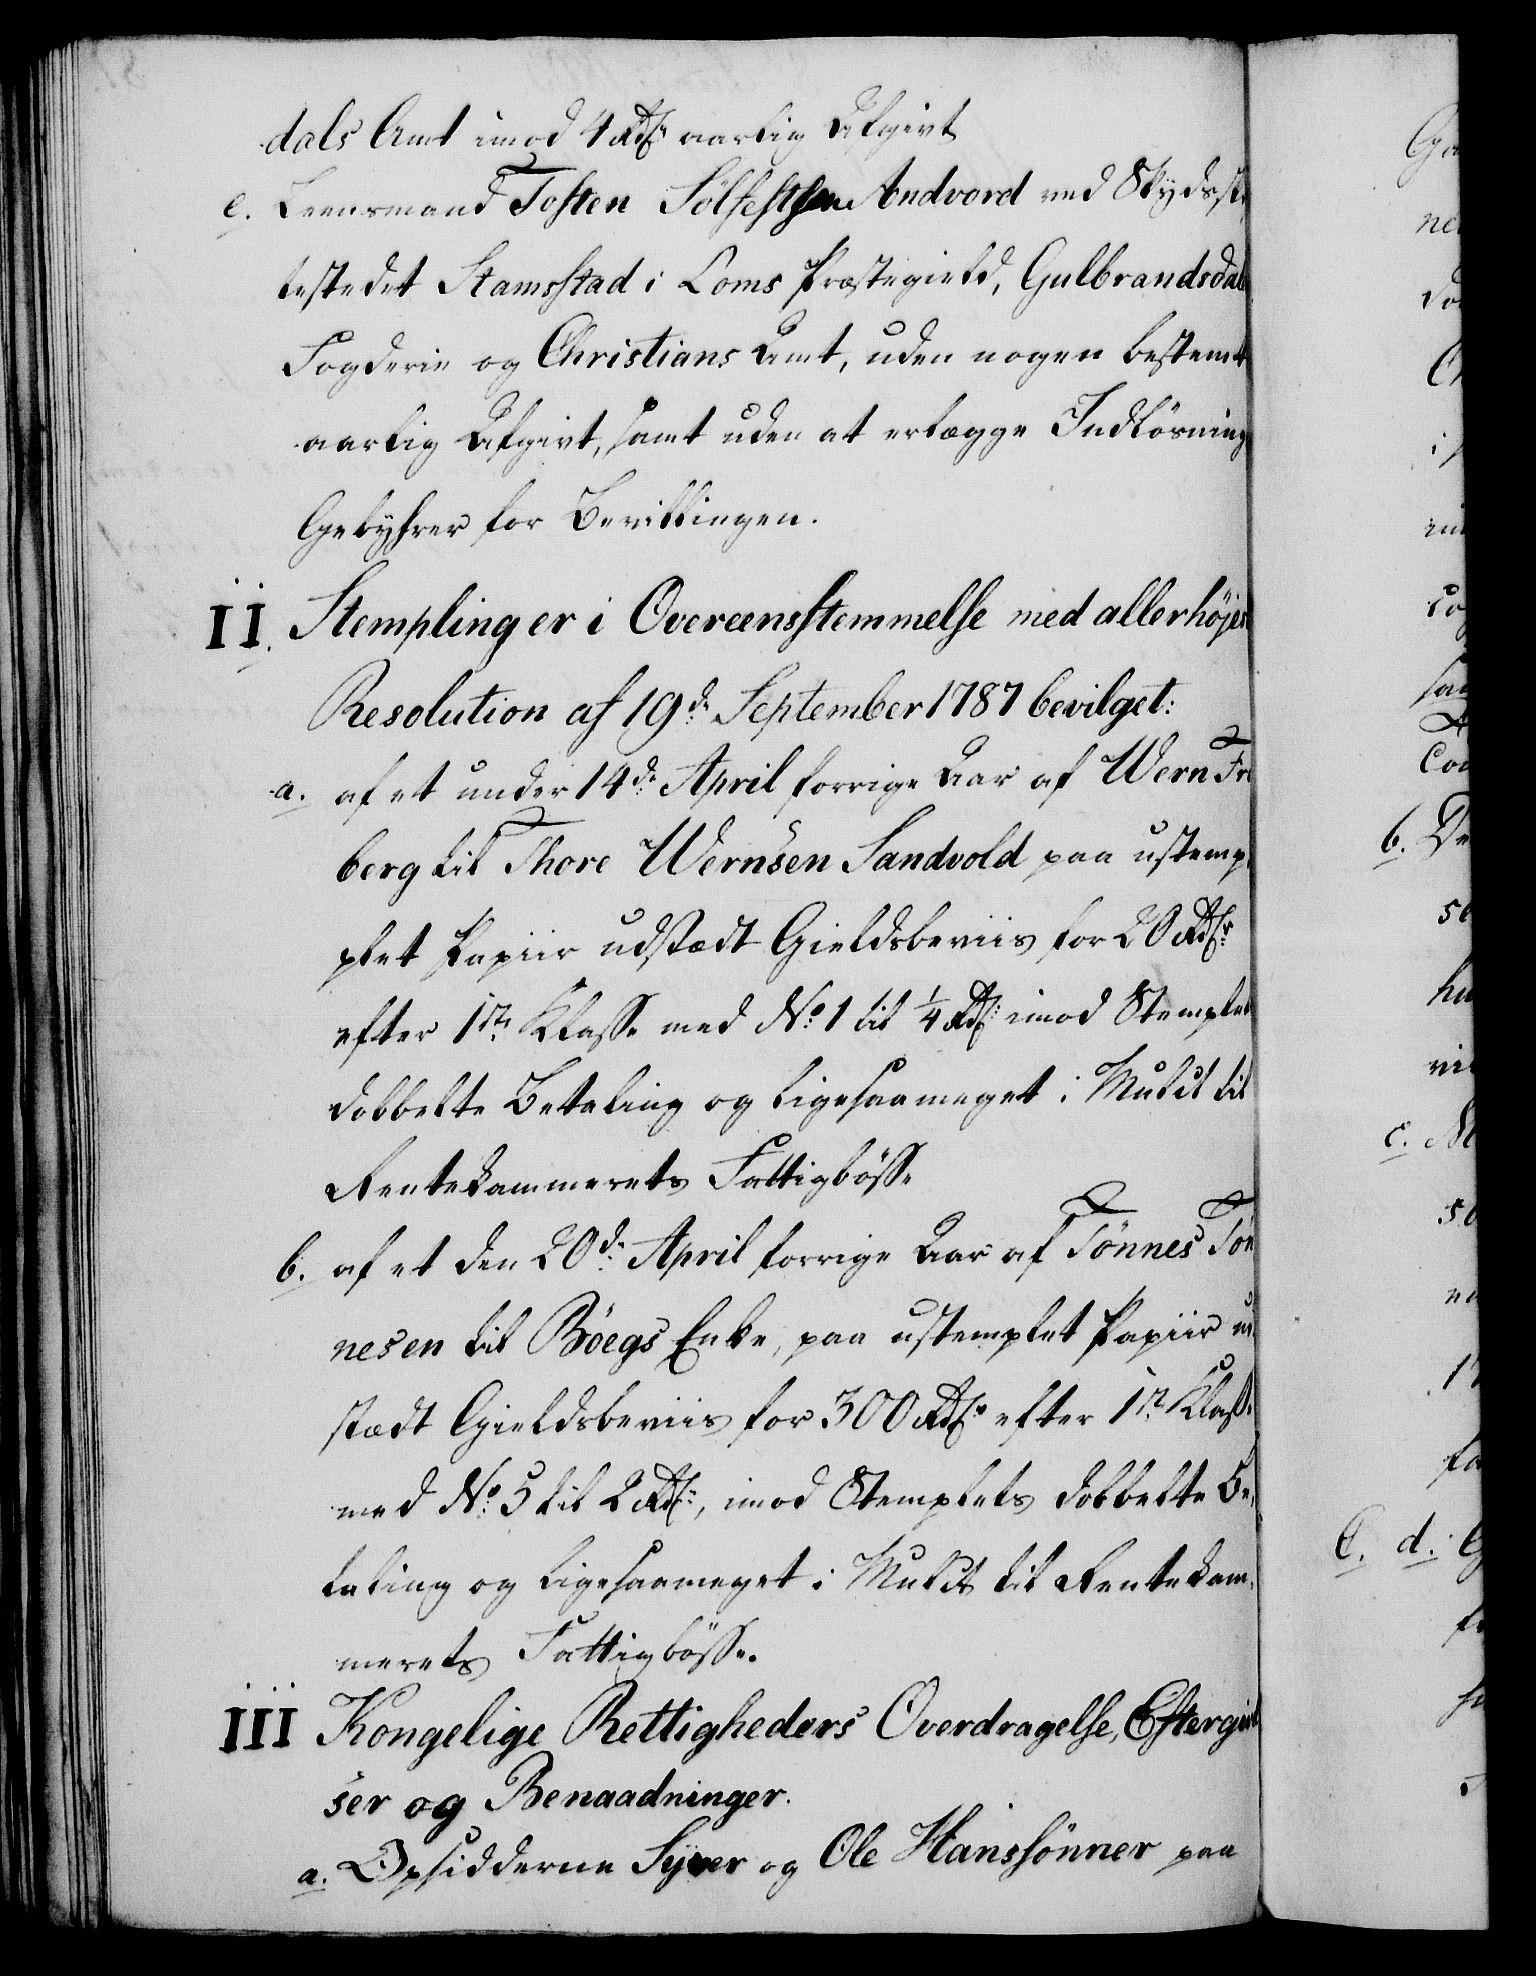 dals Amt imod 4 Rdlr aarlig Afgivt
e. Leensmand Tosten Sölfestsen Andvord ved Skydsski
testedet Stamstad i Loms Præstegield, Gulbrandsdal
Fogderie og Christians Amt, uden nogen bestemt
aarlig Afgivt, samt uden at erlægge Indlösning
Gebyhrer for Bevillingen.
II. Stemplinger i Overeensstemmelse med allerhöjes
Resolution af 19de September 1787 bevilget:
a. af et under 14de April forrige Aar af Wern Fre
berg til Thore Wernsen Sandvold paa ustemp,
plet Papiir udstædt Gieldsbeviis for 20 Rdlr
efter 1ste Klasse med No. 1 til 1/4 Rdlr imod Stemplet
dobbelte Betaling og ligesaameget i Mulct til
Rentekammerets Fattigbösse
b. af et den 20de April forrige Aar af Tönnes Tön
nesen til Böegs Enke, paa ustemplet Papiir ud
stædt Gieldsbeviis for 300 Rdlr efter 1ste Klasse
med No. 5 til 2 Rdlr, imod Stemplets dobbelte Be,
taling og ligesaameget i Mulct til Rentekam,
merets Fattigbösse.
III Kongelige Rettigheders Overdragelse, Eftergivel
ser og Benaadninger.
a. Opsidderne Syver og Ole Hanssönner paa